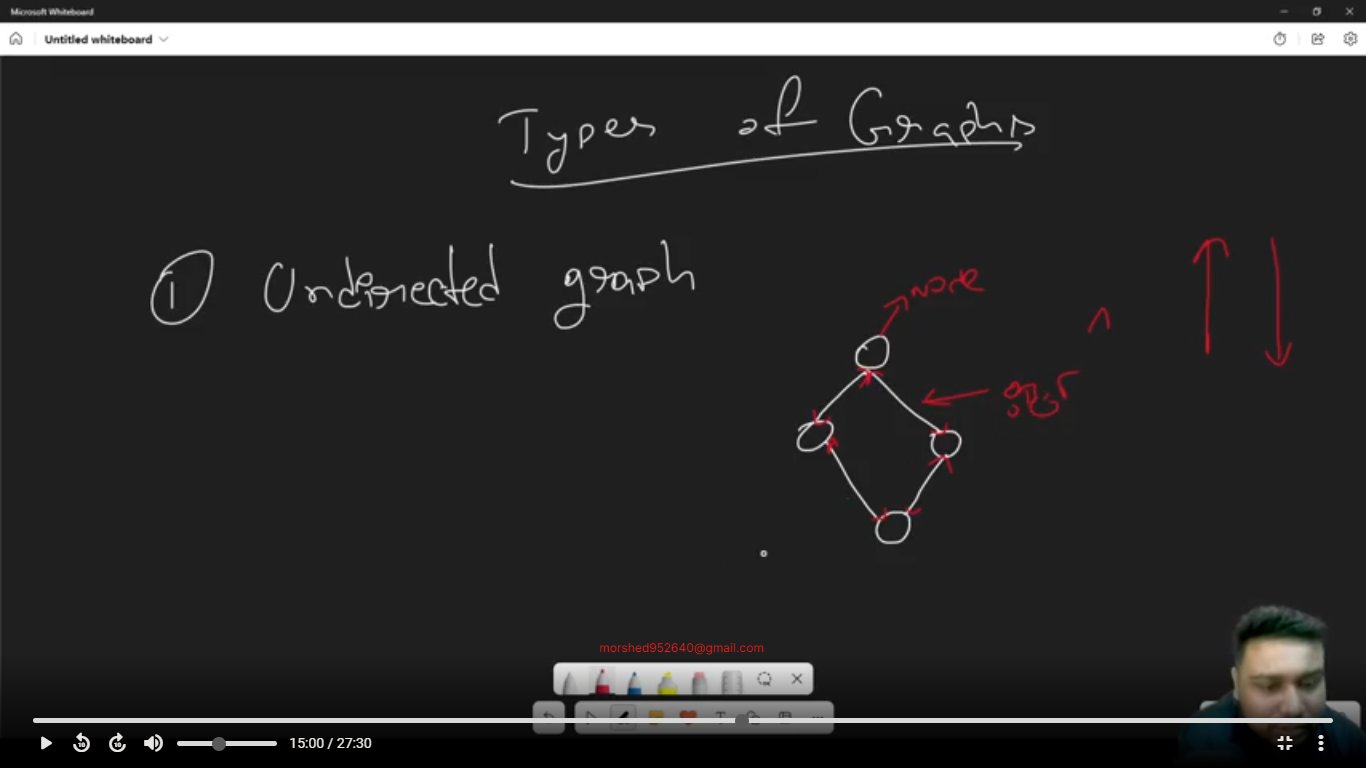 Microsoft Whiteboard
Untitled whiteboard
Types of Graphs
① Undirected graph
Node
morshed952640@gmail.com
10
10
15:00 / 27:30